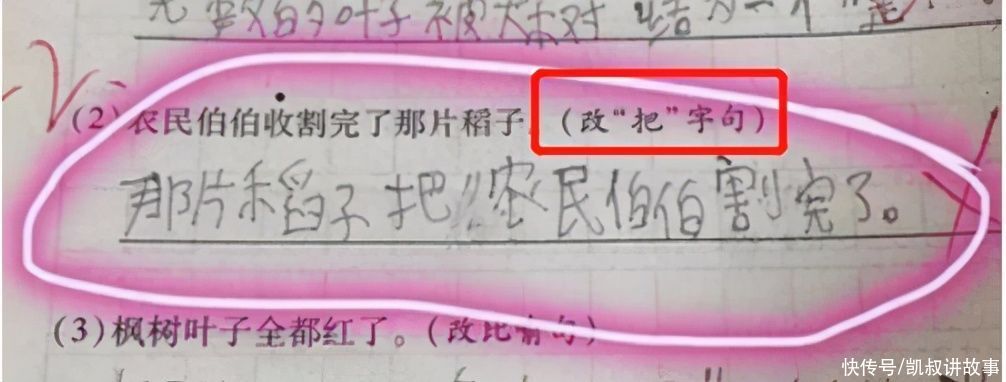 (2)农民伯伯收割完了那片稻子(改“把”字句)
那片稻子把农民伯伯割完了。
(3)枫树叶子全都红了。(改比喻句)
快传号/凯叔讲故事